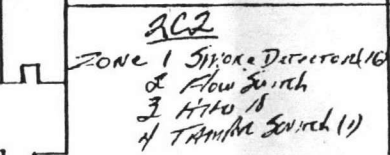 2C2
ZONE 1 Smoke Detectors (16)
2 Flow Switch
3
4 TAMPER Switch (1)